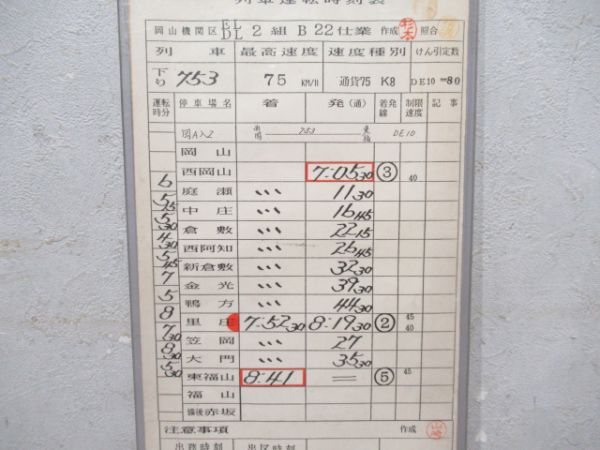 列車運転時刻表
岡山機関区 EL DL 2組 B 22仕業 作成 杉本 照合
列車 最高速度 速度種別 けん引定数
下り 753 75 KM/H 通貨75 K8 DE10 80
運転時分 停車場名 着 発(通) 着発線 制限速度 記事
図入Z 西岡 753 東福 DE10
岡山
西岡山 7:05 30 ③ 40
6 庭瀬 〃 11 30
5 15 中庄 〃 16 45
5 30 倉敷 〃 22 15
4 30 西阿知 〃 26 45
5 45 新倉敷 〃 32 30
7 金光 〃 39 30
5 鴨方 〃 44 30
8 里庄 7:52 30 8:19 30 ② 45 40
7 30 笠岡 〃 27
8 30 大門 〃 35 30
5 30 東福山 8:41 = ⑤ 45
福山
備後赤坂
注意事項 作成
出務時刻 出区時刻